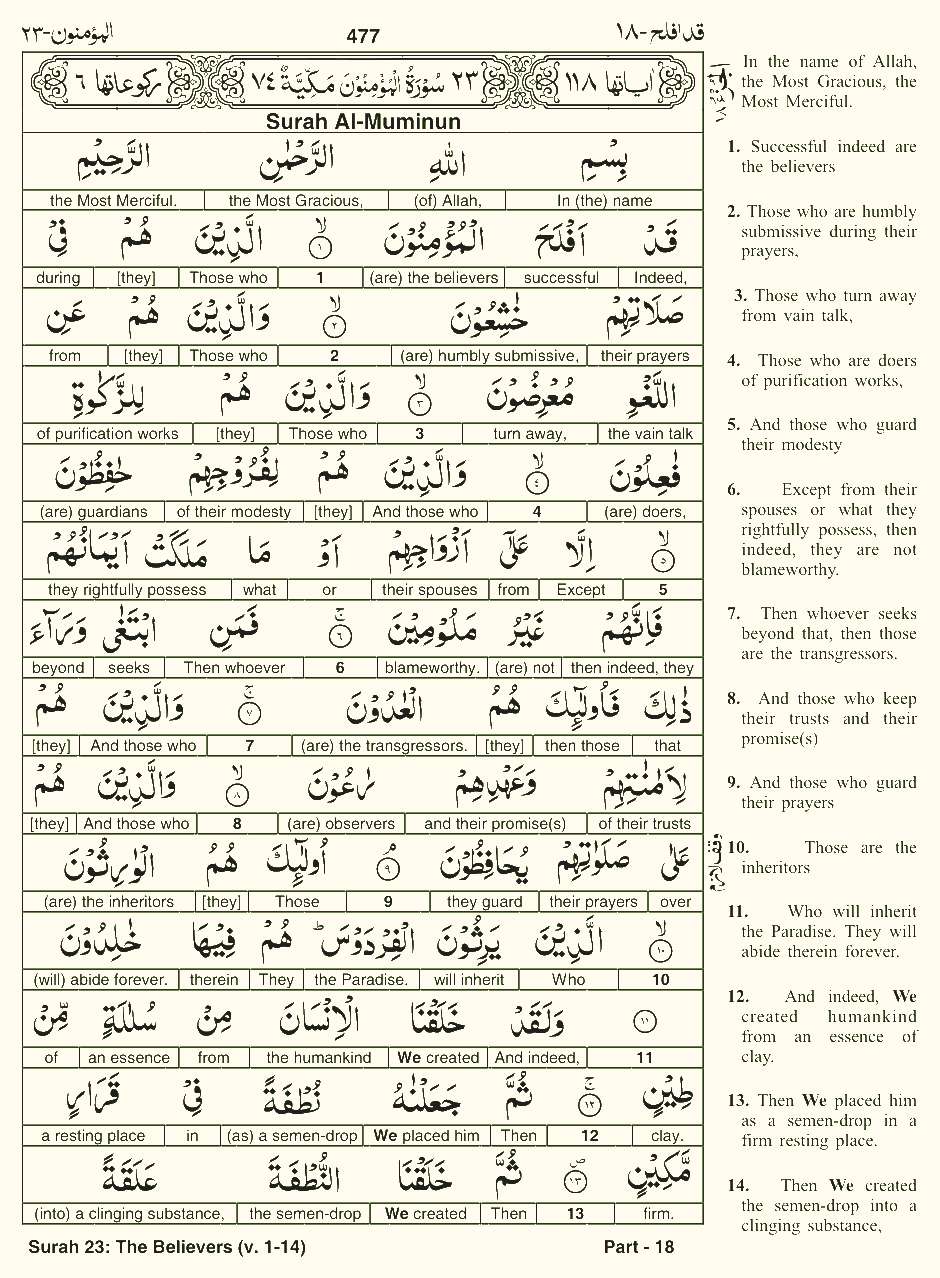 المؤمنون-٢٣ 477 قد افلح-١٨
اٰیاتها ١١٨ ٢٣ سُوْرَةُ الْمُؤْمِنُوْنَ مَكِّيَّةٌ ٧٤ رکوعاتها ٦
Surah Al-Muminun
بِسْمِ اللّٰهِ الرَّحْمٰنِ الرَّحِيْمِ
In (the) name (of) Allah, the Most Gracious, the Most Merciful.
قَدْ اَفْلَحَ الْمُؤْمِنُوْنَ ۙ‏﴿۱﴾ الَّذِيْنَ هُمْ فِيْ
Indeed, successful (are) the believers 1 Those who [they] during
صَلَاتِهِمْ خٰشِعُوْنَ ۙ‏﴿۲﴾ وَالَّذِيْنَ هُمْ عَنِ
their prayers (are) humbly submissive, 2 Those who [they] from
اللَّغْوِ مُعْرِضُوْنَ ۙ‏﴿۳﴾ وَالَّذِيْنَ هُمْ لِلزَّكٰوةِ
the vain talk turn away, 3 Those who [they] of purification works
فٰعِلُوْنَ ۙ‏﴿۴﴾ وَالَّذِيْنَ هُمْ لِفُرُوْجِهِمْ حٰفِظُوْنَ
(are) doers, 4 And those who [they] of their modesty (are) guardians
ۙ‏﴿۵﴾ اِلَّا عَلٰٓى اَزْوَاجِهِمْ اَوْ مَا مَلَكَتْ اَيْمَانُهُمْ
5 Except from their spouses or what they rightfully possess
فَاِنَّهُمْ غَيْرُ مَلُوْمِيْنَ ۚ‏﴿۶﴾ فَمَنِ ابْتَغٰى وَرَآءَ
then indeed, they (are) not blameworthy. 6 Then whoever seeks beyond
ذٰلِكَ فَاُولٰٓئِكَ هُمُ الْعٰدُوْنَ ۚ‏﴿۷﴾ وَالَّذِيْنَ هُمْ
that then those [they] (are) the transgressors. 7 And those who [they]
لِاَمٰنٰتِهِمْ وَعَهْدِهِمْ رٰعُوْنَ ۙ‏﴿۸﴾ وَالَّذِيْنَ هُمْ
of their trusts and their promise(s) (are) observers 8 And those who [they]
عَلٰى صَلَوٰتِهِمْ يُحَافِظُوْنَ ۘ‏﴿۹﴾ اُولٰٓئِكَ هُمُ الْوٰرِثُوْنَ
over their prayers they guard 9 Those [they] (are) the inheritors
ۙ‏﴿۱۰﴾ الَّذِيْنَ يَرِثُوْنَ الْفِرْدَوْسَ ؕ هُمْ فِيْهَا خٰلِدُوْنَ
10 Who will inherit the Paradise. They therein (will) abide forever.
﴿۱۱﴾ وَلَقَدْ خَلَقْنَا الْاِنْسَانَ مِنْ سُلٰلَةٍ مِّنْ
11 And indeed, We created the humankind from an essence of
طِيْنٍ ۚ‏﴿۱۲﴾ ثُمَّ جَعَلْنٰهُ نُطْفَةً فِيْ قَرَارٍ
clay. 12 Then We placed him (as) a semen-drop in a resting place
مَّكِيْنٍ ۖ‏﴿۱۳﴾ ثُمَّ خَلَقْنَا النُّطْفَةَ عَلَقَةً
firm. 13 Then We created the semen-drop (into) a clinging substance,
In the name of Allah,
the Most Gracious, the
Most Merciful.
1. Successful indeed are
the believers
2. Those who are humbly
submissive during their
prayers,
3. Those who turn away
from vain talk,
4. Those who are doers
of purification works,
5. And those who guard
their modesty
6. Except from their
spouses or what they
rightfully possess, then
indeed, they are not
blameworthy.
7. Then whoever seeks
beyond that, then those
are the transgressors.
8. And those who keep
their trusts and their
promise(s)
9. And those who guard
their prayers
10. Those are the
inheritors
11. Who will inherit
the Paradise. They will
abide therein forever.
12. And indeed, We
created humankind
from an essence of
clay.
13. Then We placed him
as a semen-drop in a
firm resting place.
14. Then We created
the semen-drop into a
clinging substance,
وقف لازم
Surah 23: The Believers (v. 1-14) Part - 18